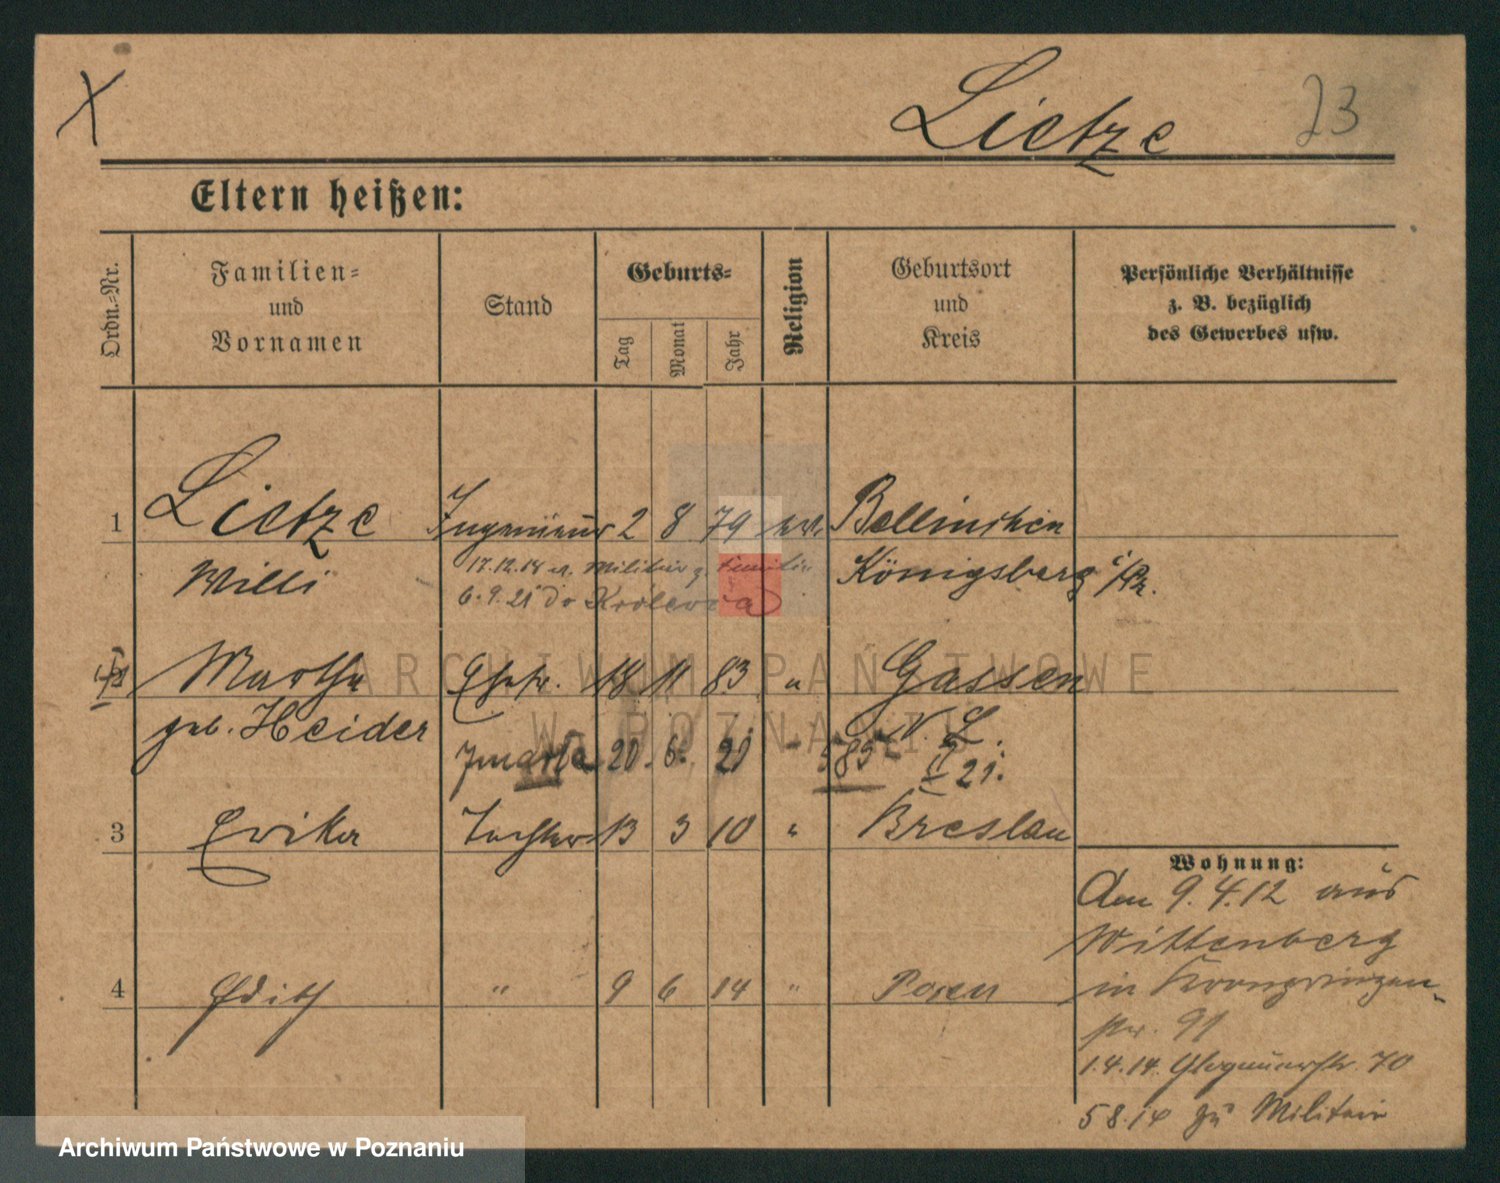 X
Lietze 23
Eltern heißen:
Ordn.-Nr.
Familien-
und
Vornamen
Stand
Geburts-
Tag
Monat
Jahr
Religion
Geburtsort
und
Kreis
Persönliche Verhältnisse
z. B. bezüglich
des Gewerbes usw.
1 Lietze Ingenieur 2 8 79 Bellinchen
Willi Königsberg
17.12.14 Militär
6.9.21
Martha Ehefr. 18 11 83 " Gassen
geb. Heider N. L.
20. 6. 21 585 II 21.
3 Erika Tochter 13 3 10 " Breslau
Wohnung:
Am 9.4.12 aus
Wittenberg
4 Edith " 9 6 14 " Posen
in Kronprinzen-
str. 91
1.4.14. Glogauerstr. 70
5 8.14 zu Militär
ARCHIWUM PAŃSTWOWE
W POZNANIU
Archiwum Państwowe w Poznaniu